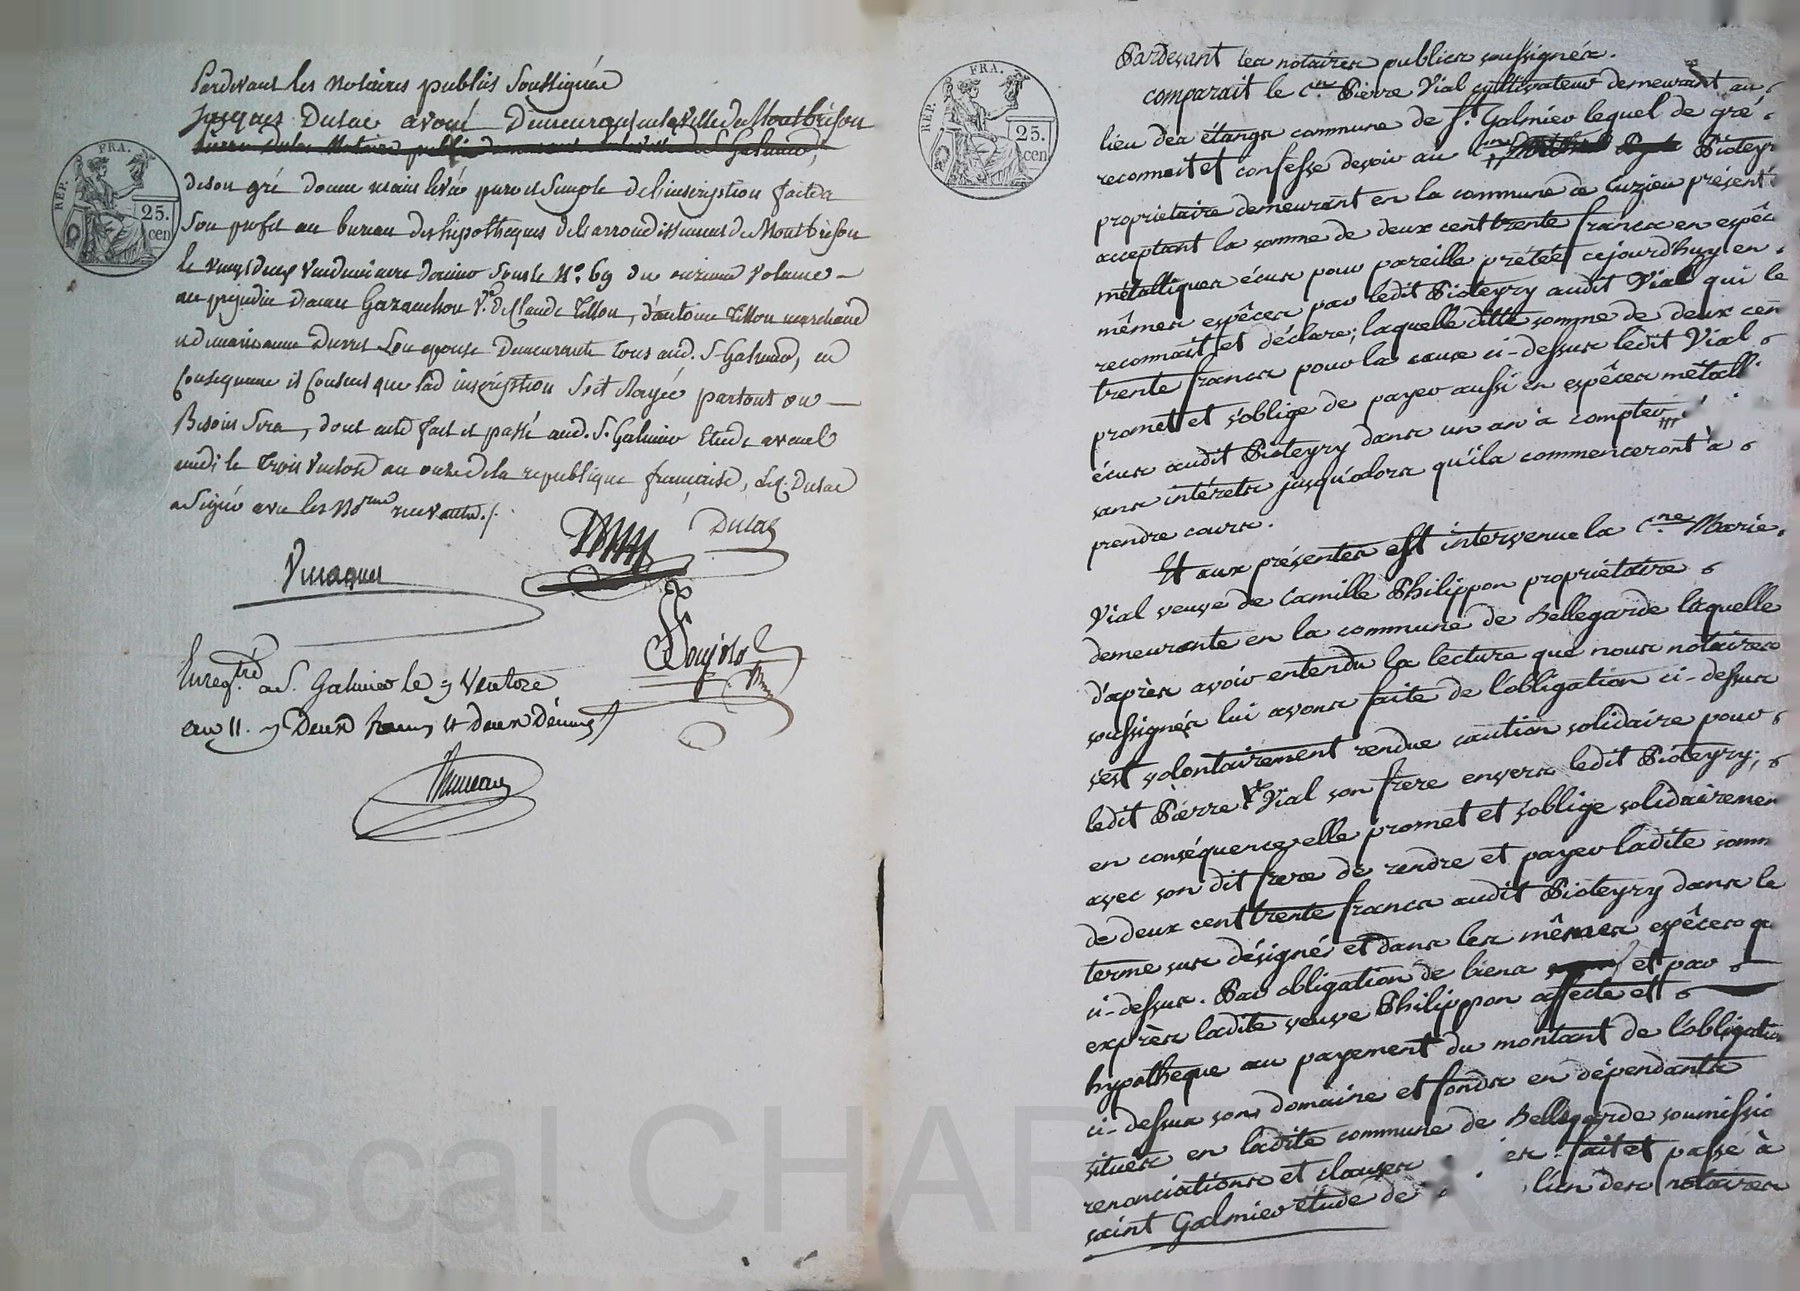 REP. FRA.
25.
cen
Pardevant les Notaires publics Soussignés
Jacques Dulac avoué Demeurant en la ville de Montbrison
de son gré donne main levée pure et simple de l'inscription faite à
Son profit au bureau des hypotheques de l'arrondissement de Montbrison
le vingt deux Vendemiaire dernier Sous le N°. 69 du onzieme volume —
au préjudice V.e de Claude Tisson, d'antoine Tisson marchand
et de marie anne Son epouse Demeurants tous aud. S. Galmier, en
Consequence il Consent que lad inscription Soit Rayée partout ou —
Besoin Sera, dont acte fait et passé aud. S. Galmier Etude avant
midi le Trois Ventose an onze de la republique française, Le C. Dulac
a Signé avec les N.res recevants./.
Dulac
Enreg.tré a S. Galmier le Ventose
an 11. Deux francs et Deux Décimes
REP. FRA.
25.
cen
Pardevant les notaires publics soussignés.
comparait le c.en Pierre Vial cultivateur demeurant au
lieu des étangs commune de S.t Galmier lequel de gré
reconnait et confesse devoir au Pioteyry
proprietaire demeurant en la commune de Cuzieu présent
acceptant la somme de deux cent trente francs en espèc
métalliques écus pour pareille prétée cejourd'huy en
mêmes espèces par ledit Pioteyry audit Vial qui le
reconnait et déclare; laquelle ditte somme de deux cen
trente francs pour la cause ci-dessus ledit Vial
promet et s'oblige de payer aussi en espêces métall
écus audit Pioteyry dans un an à compter
sans intérets jusqu'alors qu'ils commenceront à
prendre cours.
Et aux présentes est intervenue la c.ne Marie
Vial veuve de Camille Philippon propriétaire
demeurante en la commune de Bellegarde laquelle
d'après avoir entendu la lecture que nous notaires
soussignés lui avons faite de l'obligation ci-dessus
s'est volontairement rendue caution solidaire pour
ledit Pierre Vial son frere envers ledit Pioteyry;
en conséquence elle promet et s'oblige solidairemen
avec son dit frere de rendre et payer ladite somm
de deux cent trente francs audit Pioteyry dans le
terme sus désigné et dans les mêmes espêces q
ci-dessus. Par obligation de biens et par
exprès ladite veuve Philippon affecte et
hypotheque au payement du montant de l'obligation
ci-dessus son domaine et fonds en dépendants
situés en ladite commune de Bellegarde soumissio
renonciations et clauses fait et passé à
saint Galmier étude de l'un des notaires
Pascal CHAR